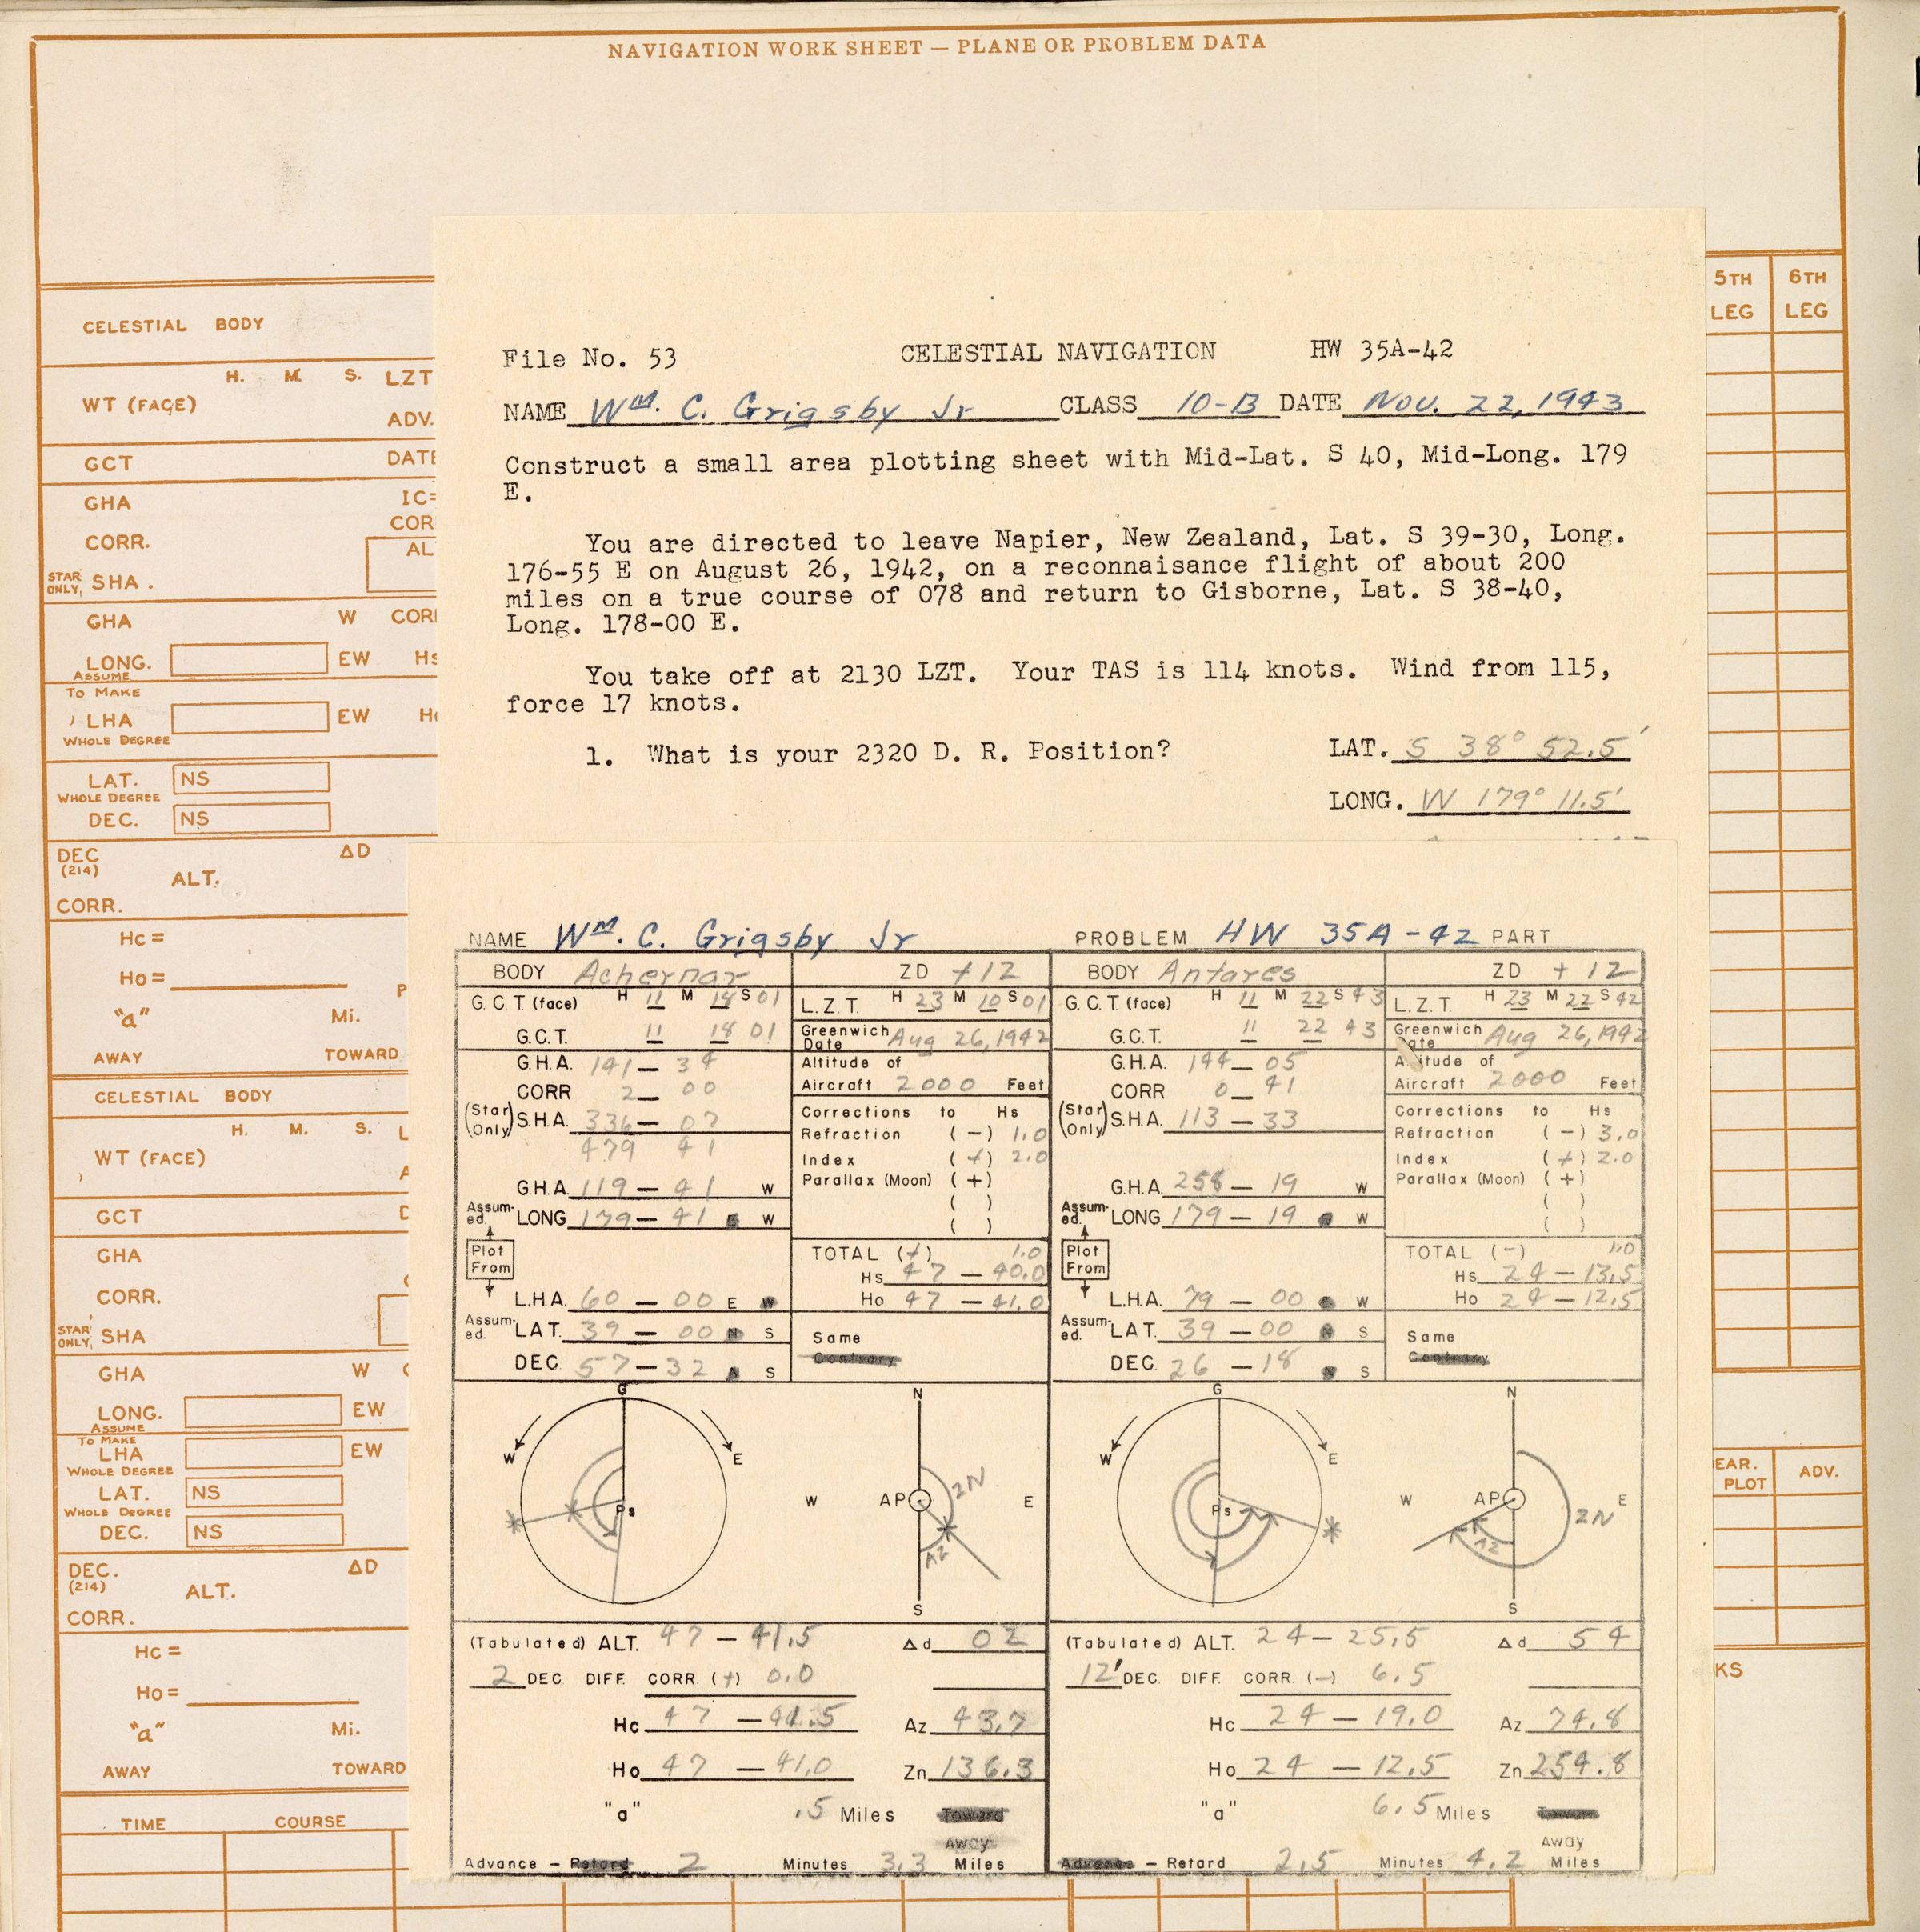 NAVIGATION WORK SHEET — PLANE OR PROBLEM DATA
5TH LEG
6TH LEG
CELESTIAL BODY
H. M. S. LZT
WT (FACE)
ADV.
GCT
DATE
GHA
IC=
CORR.
COR
AL
STAR ONLY, SHA.
GHA W CORR
LONG. EW Hs
ASSUME
TO MAKE
LHA EW Ho
WHOLE DEGREE
LAT. NS
WHOLE DEGREE
DEC. NS
DEC (214) ALT. ΔD
CORR.
Hc =
Ho =
"a" Mi.
AWAY TOWARD
CELESTIAL BODY
H. M. S. L
WT (FACE)
A
GCT D
GHA
CORR.
STAR ONLY, SHA
GHA W C
LONG. EW
ASSUME
TO MAKE
LHA EW
WHOLE DEGREE
LAT. NS
WHOLE DEGREE
DEC. NS
DEC. (214) ALT. ΔD
CORR.
Hc =
Ho =
"a" Mi.
AWAY TOWARD
TIME COURSE
EAR. PLOT ADV.
KS
File No. 53 CELESTIAL NAVIGATION HW 35A-42
NAME Wm. C. Grigsby Jr CLASS 10-B DATE Nov. 22, 1943
Construct a small area plotting sheet with Mid-Lat. S 40, Mid-Long. 179
E.
You are directed to leave Napier, New Zealand, Lat. S 39-30, Long.
176-55 E on August 26, 1942, on a reconnaisance flight of about 200
miles on a true course of 078 and return to Gisborne, Lat. S 38-40,
Long. 178-00 E.
You take off at 2130 LZT. Your TAS is 114 knots. Wind from 115,
force 17 knots.
1. What is your 2320 D. R. Position? LAT. S 38° 52.5'
LONG. W 179° 11.5'
NAME Wm. C. Grigsby Jr PROBLEM HW 35A-42 PART
BODY Achernar ZD +12
G.C.T. (face) H 11 M 18 S 01 L.Z.T. H 23 M 10 S 01
G.C.T. 11 18 01 Greenwich Date Aug 26, 1942
G.H.A. 141 — 34 Altitude of
CORR 2 — 00 Aircraft 2000 Feet
(Star Only) S.H.A. 336 — 07 Corrections to Hs
479 41 Refraction (-) 1.0
Index (+) 2.0
G.H.A. 119 — 41 W Parallax (Moon) (+)
( )
Assumed. LONG 179 — 41 W ( )
Plot From TOTAL (+) 1.0
Hs 47 — 40.0
L.H.A. 60 — 00 E Ho 47 — 41.0
Assumed. LAT. 39 — 00 S Same
DEC. 57 — 32 S Contrary
G
W E
Ps
N
W AP E
ZN
AZ
S
(Tabulated) ALT. 47 — 41.5 Δd 02
2 DEC DIFF. CORR. (+) 0.0
Hc 47 — 41.5 Az 43.7
Ho 47 — 41.0 Zn 136.3
"a" .5 Miles Toward
Away
Advance — Retard 2 Minutes 3.3 Miles
BODY Antares ZD +12
G.C.T. (face) H 11 M 22 S 43 L.Z.T. H 23 M 22 S 42
G.C.T. 11 22 43 Greenwich Date Aug 26, 1942
G.H.A. 144 — 05 Altitude of
CORR 0 — 41 Aircraft 2000 Feet
(Star Only) S.H.A. 113 — 33 Corrections to Hs
Refraction (-) 3.0
Index (+) 2.0
G.H.A. 258 — 19 W Parallax (Moon) (+)
( )
Assumed. LONG 179 — 19 W ( )
Plot From TOTAL (-) 1.0
Hs 24 — 13.5
L.H.A. 79 — 00 W Ho 24 — 12.5
Assumed. LAT. 39 — 00 S Same
DEC. 26 — 18 S Contrary
G
W E
Ps
N
W AP E
ZN
AZ
S
(Tabulated) ALT. 24 — 25.5 Δd 54
12' DEC DIFF. CORR. (-) 6.5
Hc 24 — 19.0 Az 74.8
Ho 24 — 12.5 Zn 254.8
"a" 6.5 Miles
Away
Advance — Retard 2.5 Minutes 4.2 Miles